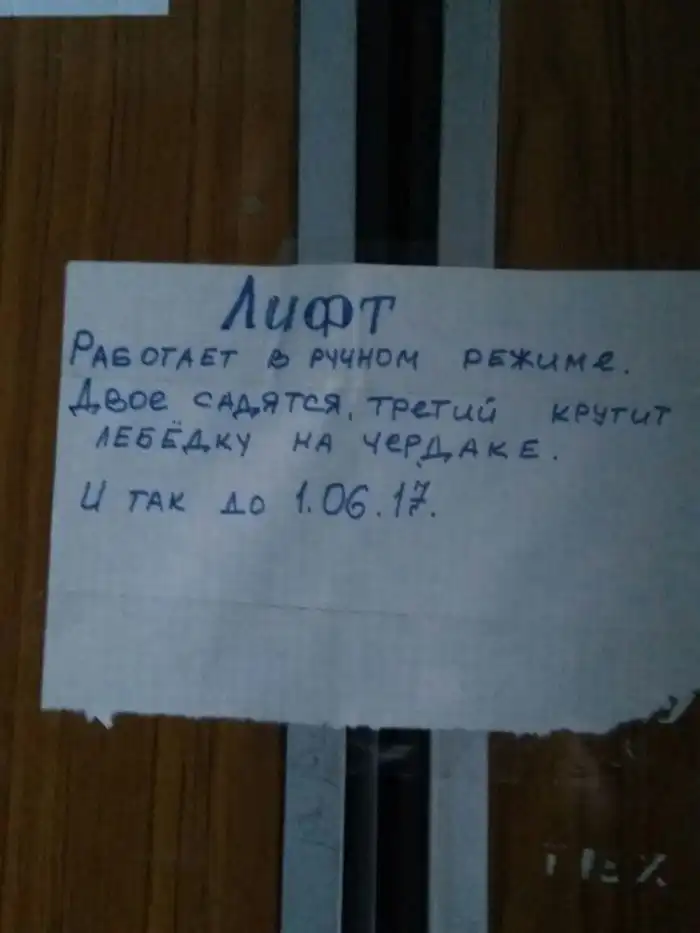 Лифт
Работает в ручном режиме.
Двое садятся, третий крутит
лебёдку на чердаке.
И так до 1.06.17.